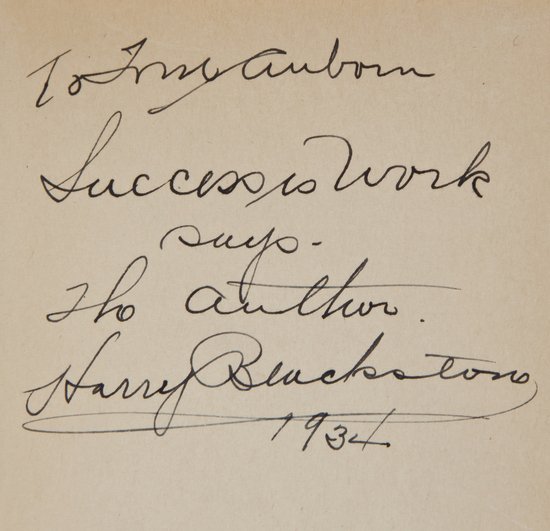 To Auborn
Success is Work
says.
The Author.
Harry Blackstone
1934